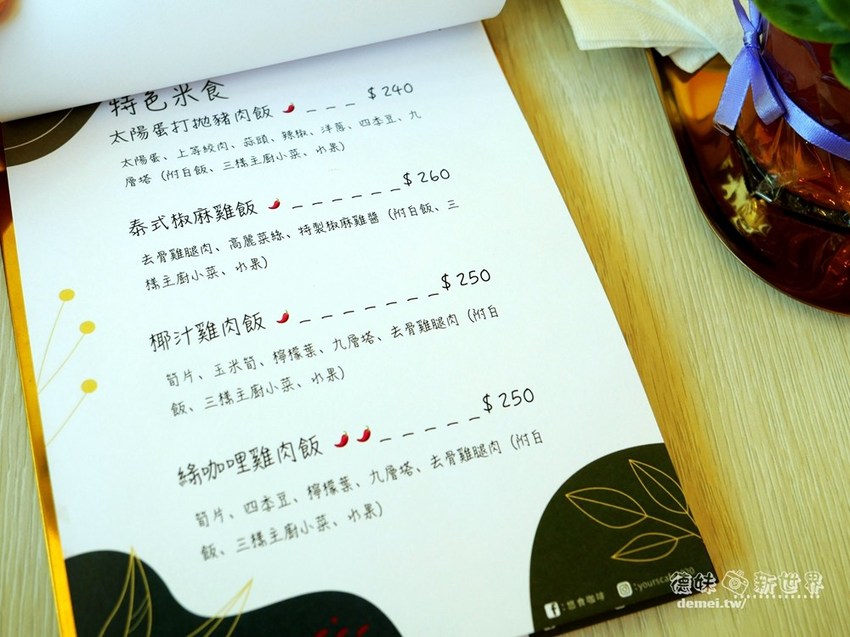 特色米食
太陽蛋打拋豬肉飯 $240
太陽蛋、上等絞肉、蒜頭、辣椒、洋蔥、四季豆、九
層塔（附白飯、三樣主廚小菜、水果）
泰式椒麻雞飯 $260
去骨雞腿肉、高麗菜絲、特製椒麻雞醬（附白飯、三
樣主廚小菜、水果）
椰汁雞肉飯 $250
筍片、玉米筍、檸檬葉、九層塔、去骨雞腿肉（附白
飯、三樣主廚小菜、水果）
綠咖哩雞肉飯 $250
筍片、四季豆、檸檬葉、九層塔、去骨雞腿肉（附白
飯、三樣主廚小菜、水果）
：悠食咖啡
德妹 新世界
demei.tw/